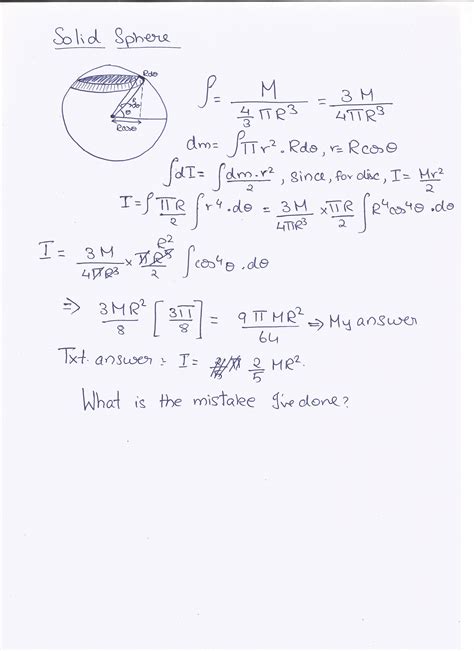 Solid Sphere
Rdθ
r dθ
θ
Rcosθ
ρ = M / (4/3 πR³) = 3M / 4πR³
dm = ρπr². Rdθ, r = Rcosθ
∫dI = ∫ dm.r²/2, Since, for disc, I = Mr²/2
I = ρ πR/2 ∫ r⁴. dθ = 3M/4πR³ × πR/2 ∫ R⁴cos⁴θ. dθ
I = 3M/4πR³ × πR⁵/2 R² ∫cos⁴θ. dθ
⇒ 3MR²/8 [3π/8] = 9πMR²/64 ⇒ My answer
Txt. answer : I = 2/5 MR².
What is the mistake I've done?